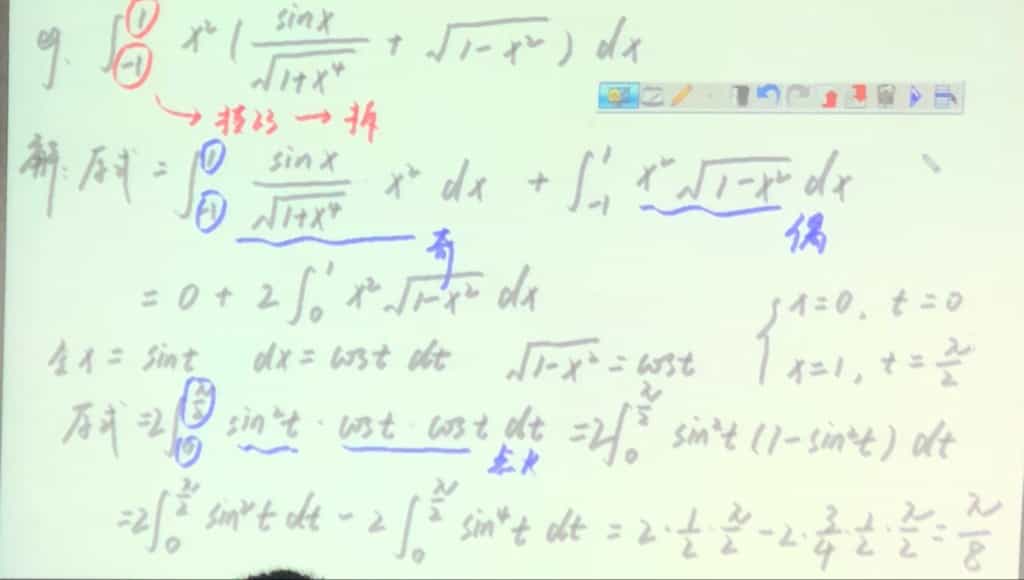 eg. ∫_{-1}^{1} x² ( sinx / √(1+x⁴) + √(1-x²) ) dx
→ → 拆
解: 原式 = ∫_{-1}^{1} sinx / √(1+x⁴) x² dx + ∫_{-1}^{1} x² √(1-x²) dx
奇 偶
= 0 + 2 ∫_{0}^{1} x² √(1-x²) dx
令 x = sint dx = cost dt √(1-x²) = cost { x=0, t=0
x=1, t=π/2
原式 = 2∫_{0}^{π/2} sin²t · cost · cost dt = 2∫_{0}^{π/2} sin²t (1-sin²t) dt
点火
= 2∫_{0}^{π/2} sin²t dt - 2∫_{0}^{π/2} sin⁴t dt = 2·1/2·π/2 - 2·3/4·1/2·π/2 = π/8